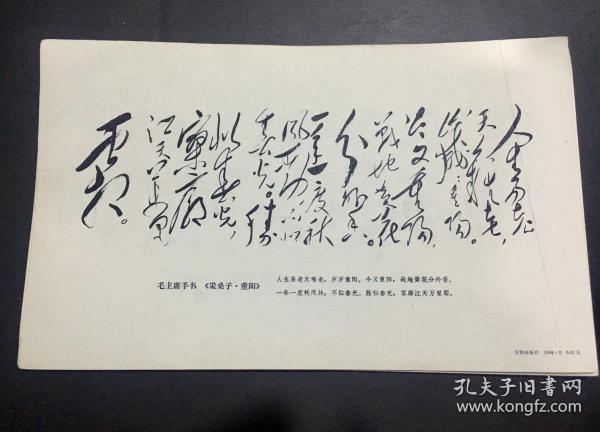 人生易老
天难老,
岁岁重阳。
今又重阳,
战地黄花
分外香。
一年一度秋
风劲,不似
春光。胜
似春光,
寥廓
江天万里
霜。
毛主席手书 《采桑子·重阳》
人生易老天难老,岁岁重阳。今又重阳,战地黄花分外香。
一年一度秋风劲,不似春光。胜似春光,寥廓江天万里霜。
文物出版社
孔夫子旧书网
www.kongfz.com